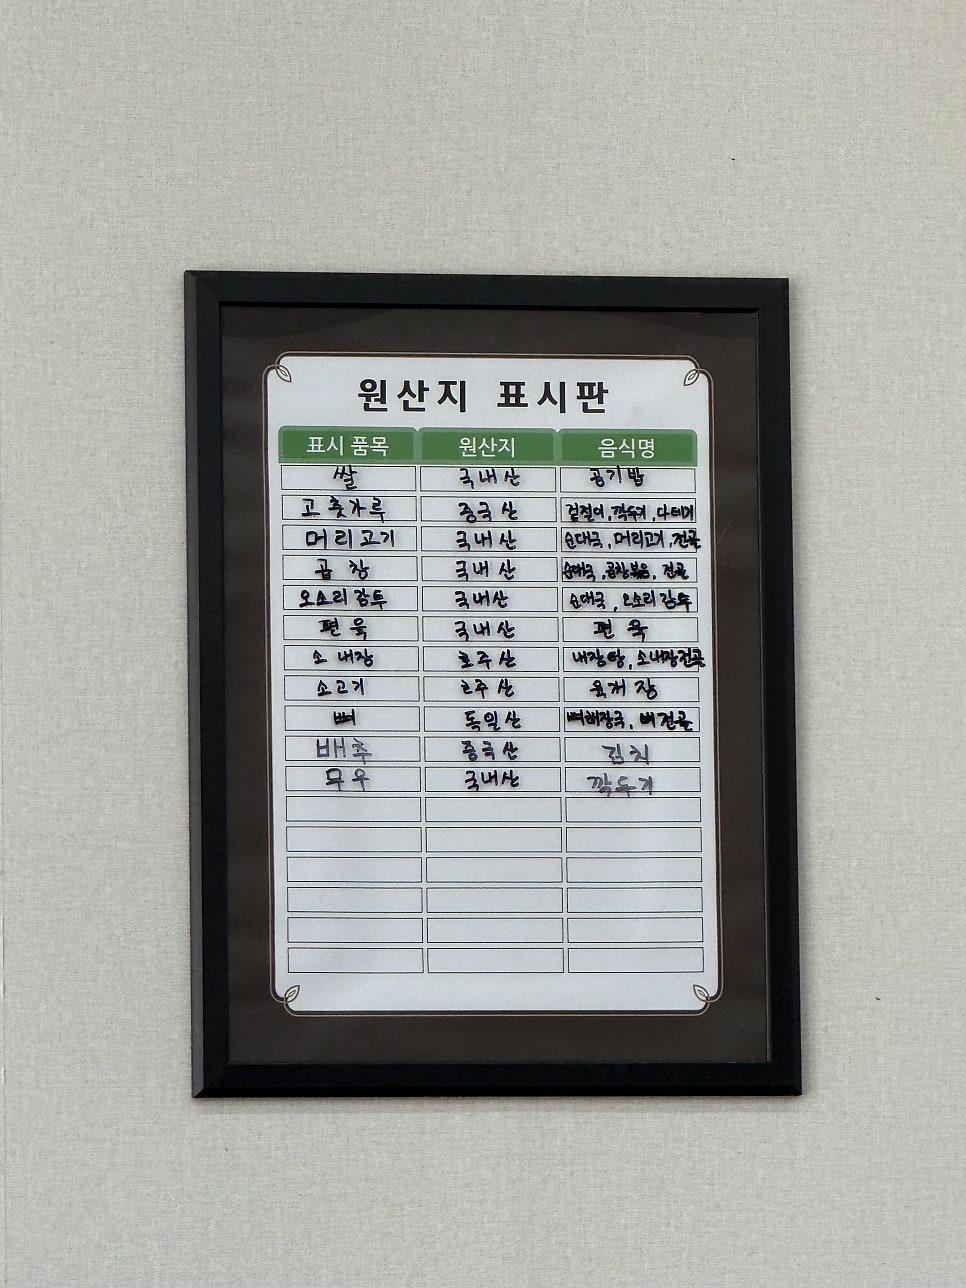 원산지 표시판
표시 품목 원산지 음식명
쌀 국내산 공기밥
고춧가루 중국산 겉절이, 깍두기, 다데기
머리고기 국내산 순대국, 머리고기, 전골
곱창 국내산 순대국, 곱창볶음, 전골
오소리감투 국내산 순대국, 오소리감투
편육 국내산 편육
소 내장 호주산 내장탕, 소내장전골
소고기 호주산 육개장
뼈 독일산 뼈해장국, 뼈전골
배추 중국산 김치
무우 국내산 깍두기